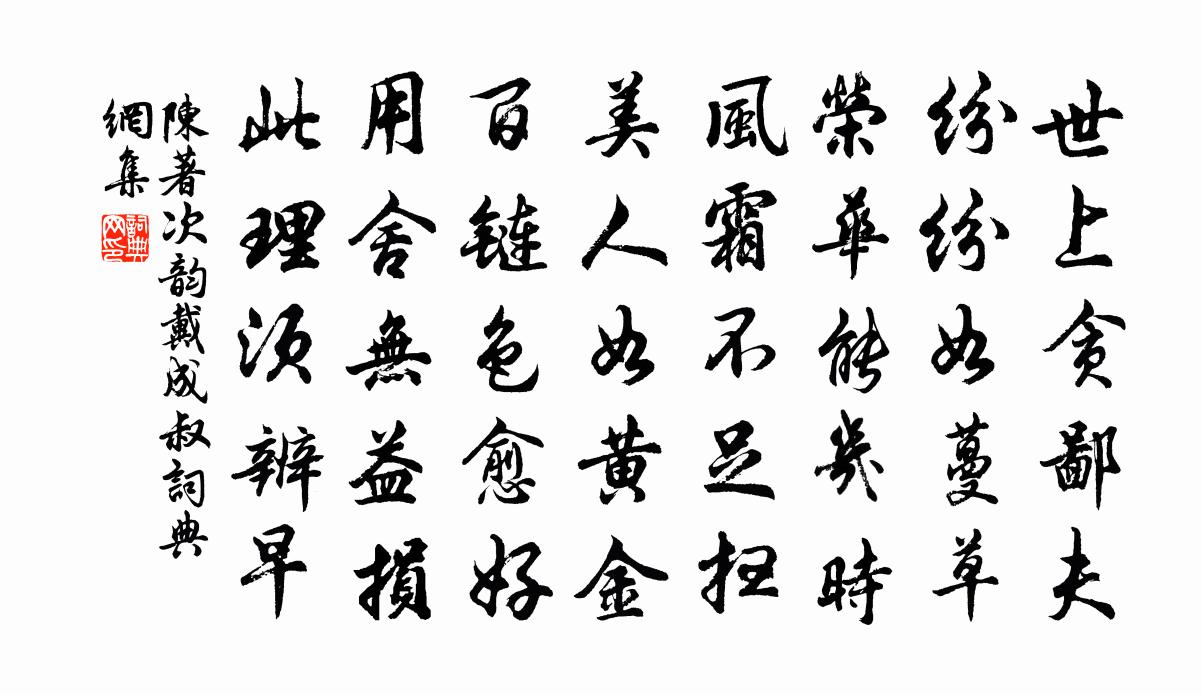 世上贪鄙夫
紛紛如蔓草
榮華能幾時
風霜不足抂
美人如黄金
百鏈色愈好
用舍無益損
此理須辨早
陳著次韵戴成叔詞典
網集
詞典网印